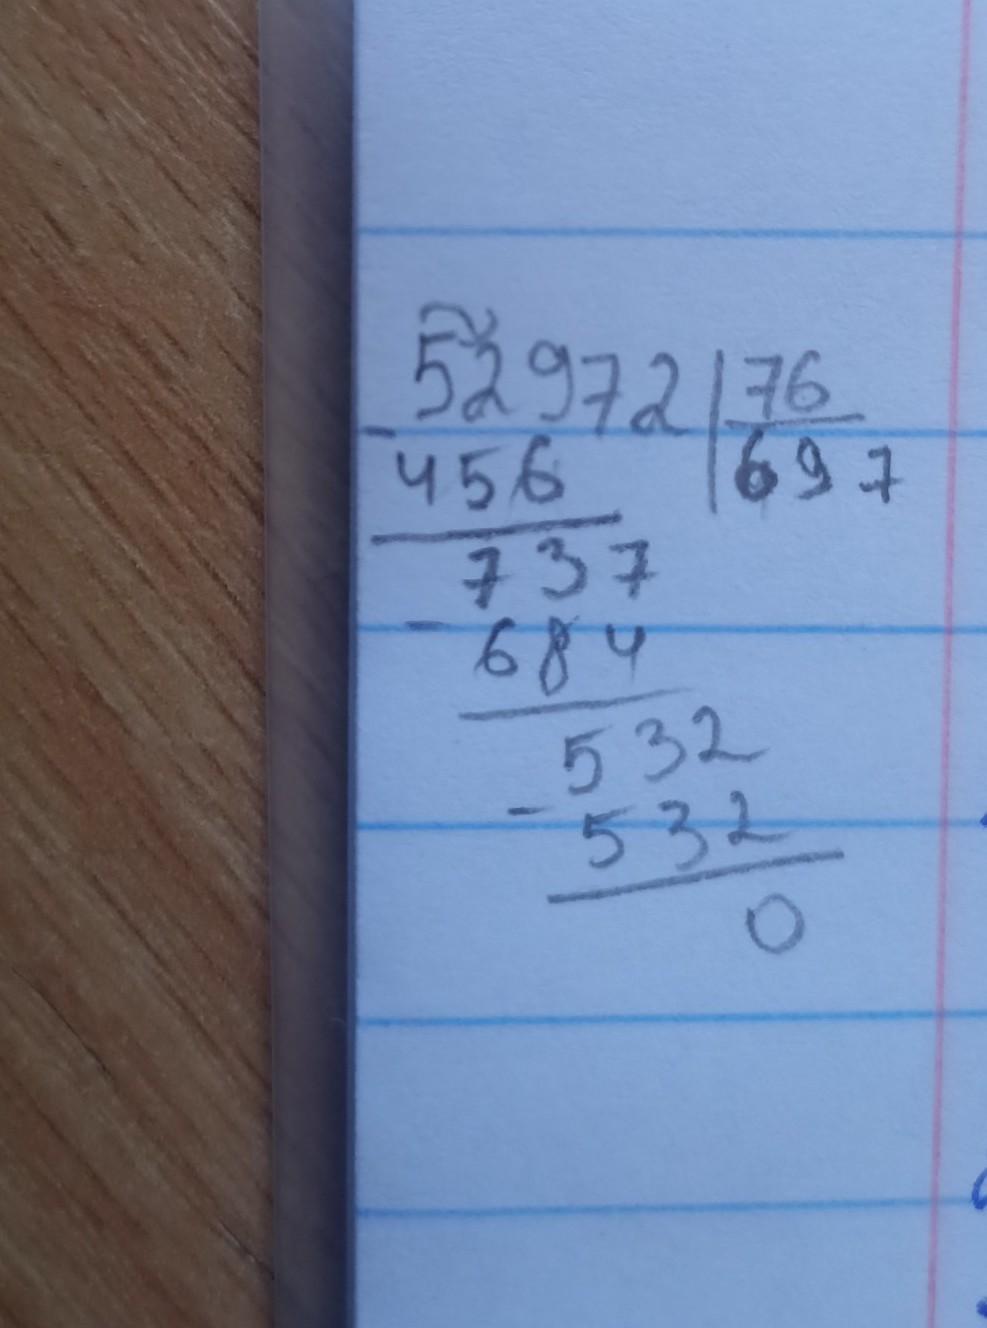 52972 76
- 456 697
737
- 684
532
- 532
0